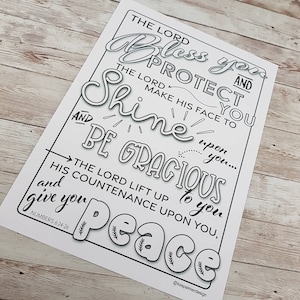 THE LORD
Bless you
AND
PROTECT
YOU
THE LORD
MAKE HIS FACE TO
Shine
upon
you...
AND
BE GRACIOUS
to you
THE LORD LIFT UP
HIS COUNTENANCE UPON YOU,
and
give you
Peace
NUMBERS 6:24-26